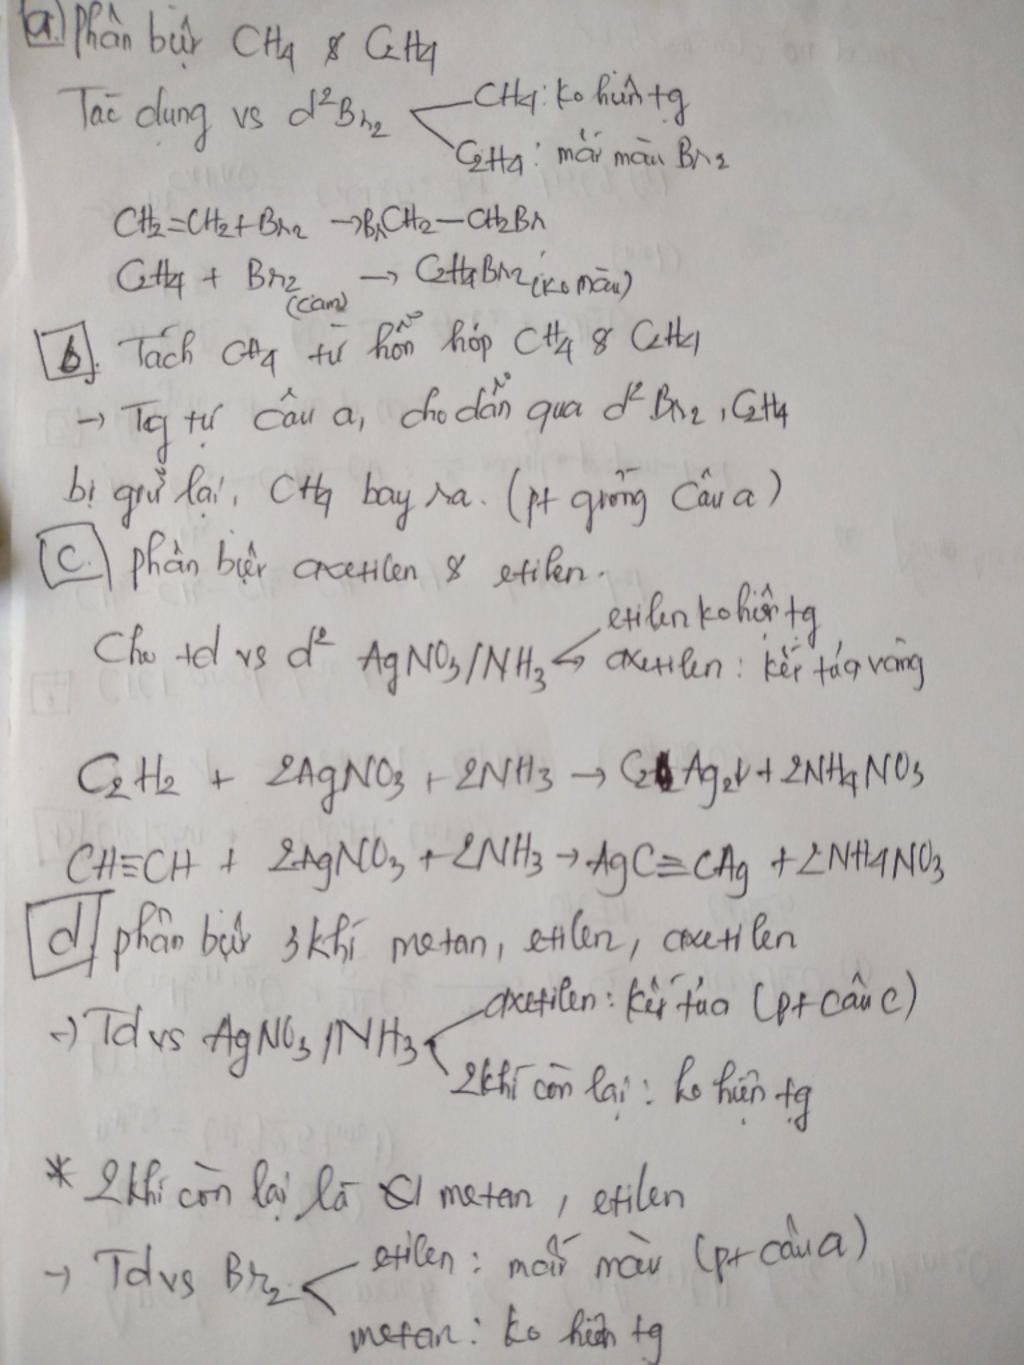 a. phân biệt CH4 & C2H4
Tác dụng vs d² Br2 CH4: ko hiện tg
C2H4: mất màu Br2
CH2=CH2+Br2 →BrCH2-CH2Br
C2H4 + Br2 → C2H4Br2 (ko màu)
(cam)
b. Tách CH4 từ hỗn hợp CH4 & C2H4
→ Tg tự câu a, cho dẫn qua d² Br2, C2H4
bị giữ lại, CH4 bay ra. (pt giống câu a)
c. phân biệt axetilen & etilen.
Cho td vs d² AgNO3/NH3 etilen ko hiện tg
axetilen: kết tủa vàng
C2H2 + 2AgNO3 + 2NH3 → C2Ag2↓ + 2NH4NO3
CH≡CH + 2AgNO3 + 2NH3 → AgC≡CAg + 2NH4NO3
d, phân biệt 3 khí metan, etilen, axetilen
→ Td vs AgNO3/NH3 axetilen: kết tủa (pt câu c)
2 khí còn lại: ko hiện tg
* 2 khí còn lại là metan, etilen
→ Td vs Br2 etilen: mất màu (pt câu a)
metan: ko hiện tg